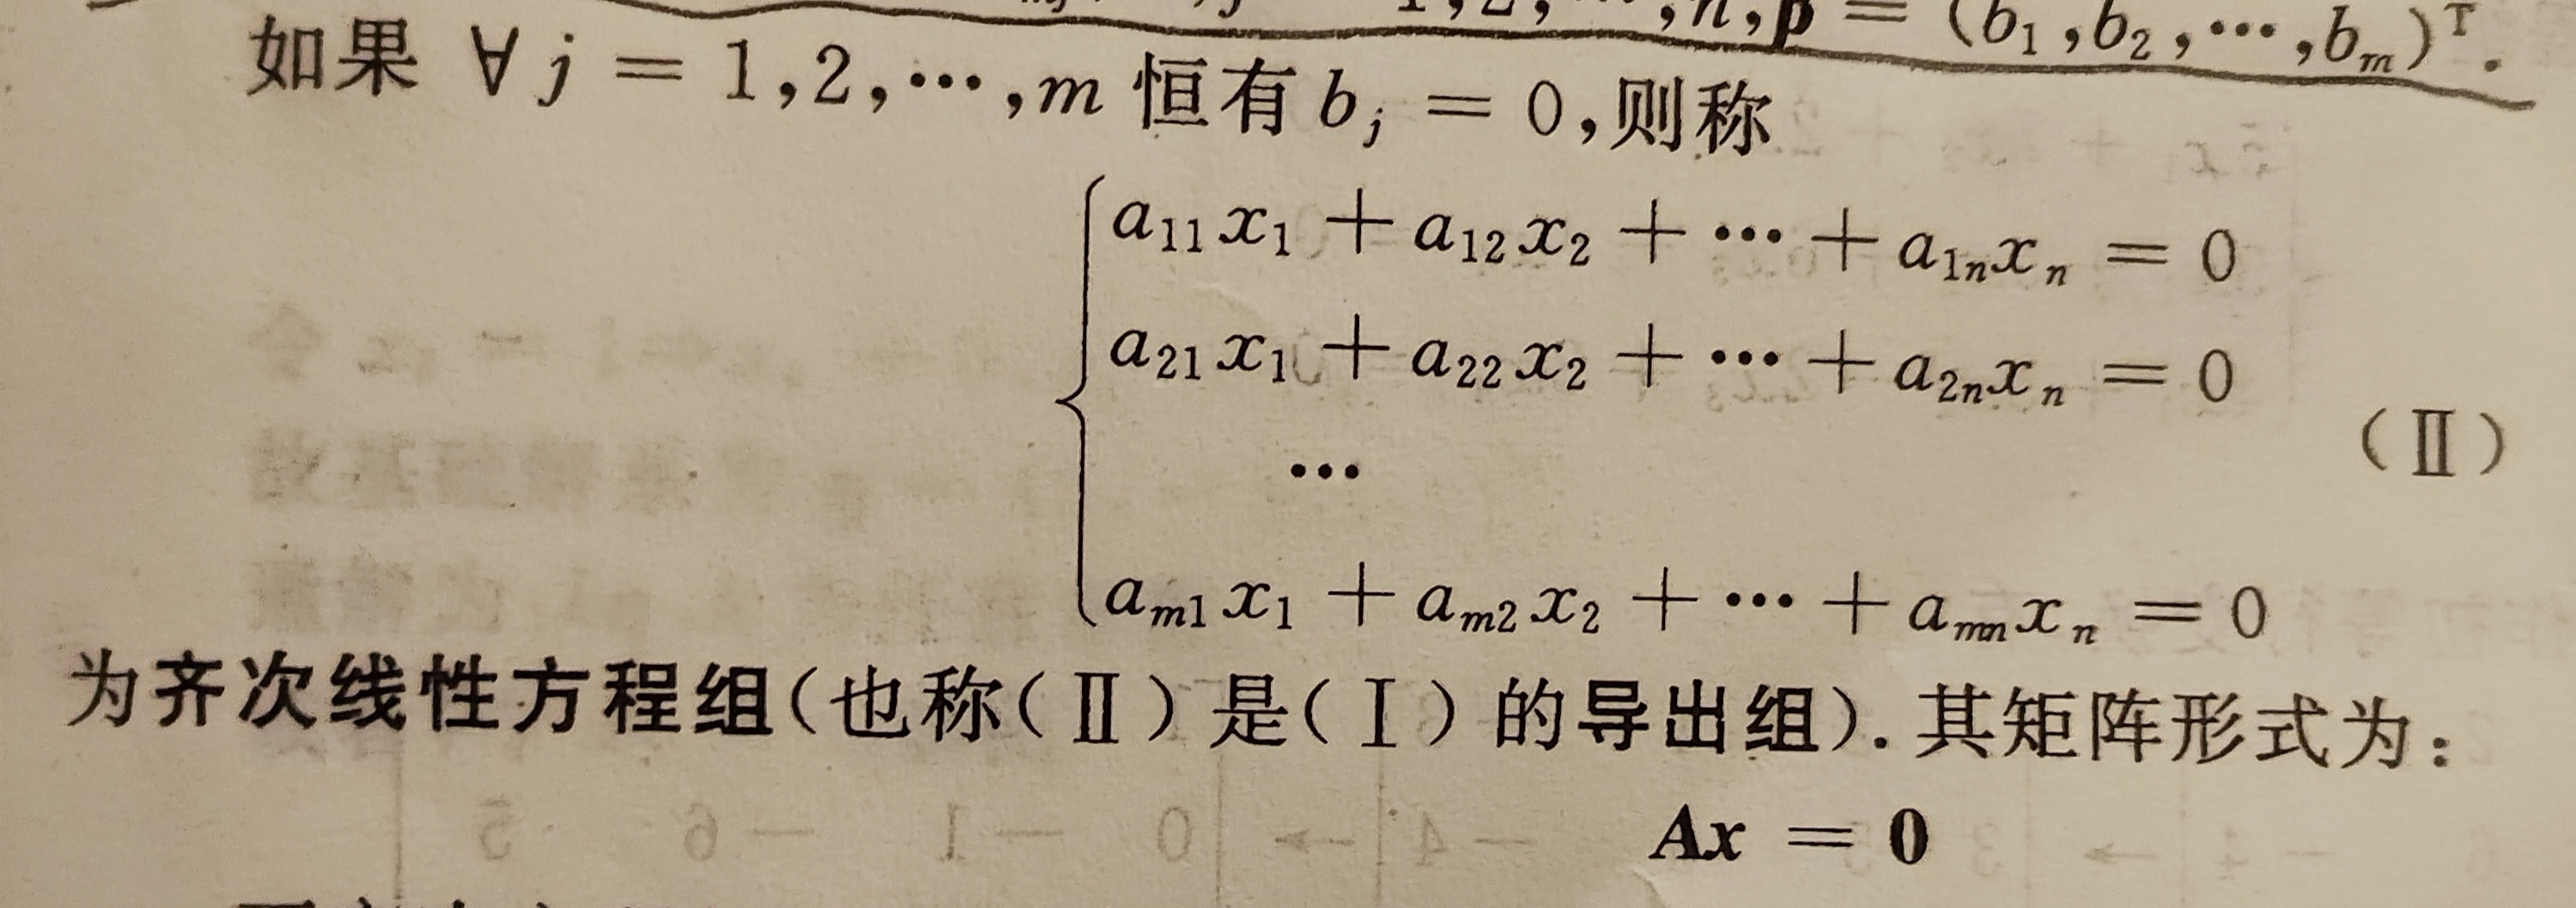 1,2,⋯,n,β = (b₁,b₂,⋯,bₘ)ᵀ.
如果 ∀ j = 1,2,⋯,m 恒有 bⱼ = 0,则称
a₁₁x₁ + a₁₂x₂ + ⋯ + a₁ₙxₙ = 0
a₂₁x₁ + a₂₂x₂ + ⋯ + a₂ₙxₙ = 0
⋯
(Ⅱ)
aₘ₁x₁ + aₘ₂x₂ + ⋯ + aₘₙxₙ = 0
为齐次线性方程组(也称(Ⅱ)是(Ⅰ)的导出组).其矩阵形式为:
Ax = 0